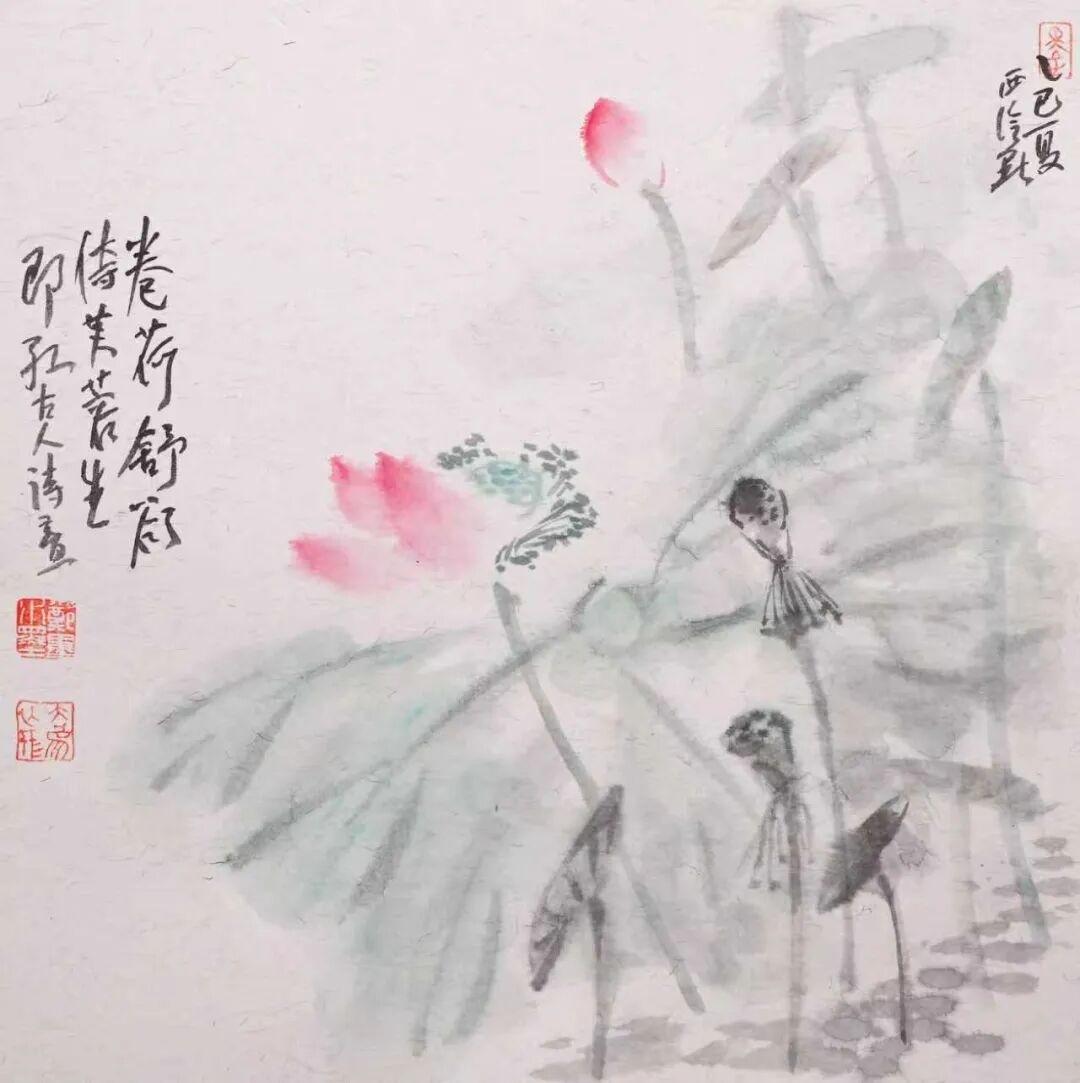 乙巳夏
西泠
卷荷舒欲
倚芙蓉生
即红古人诗意